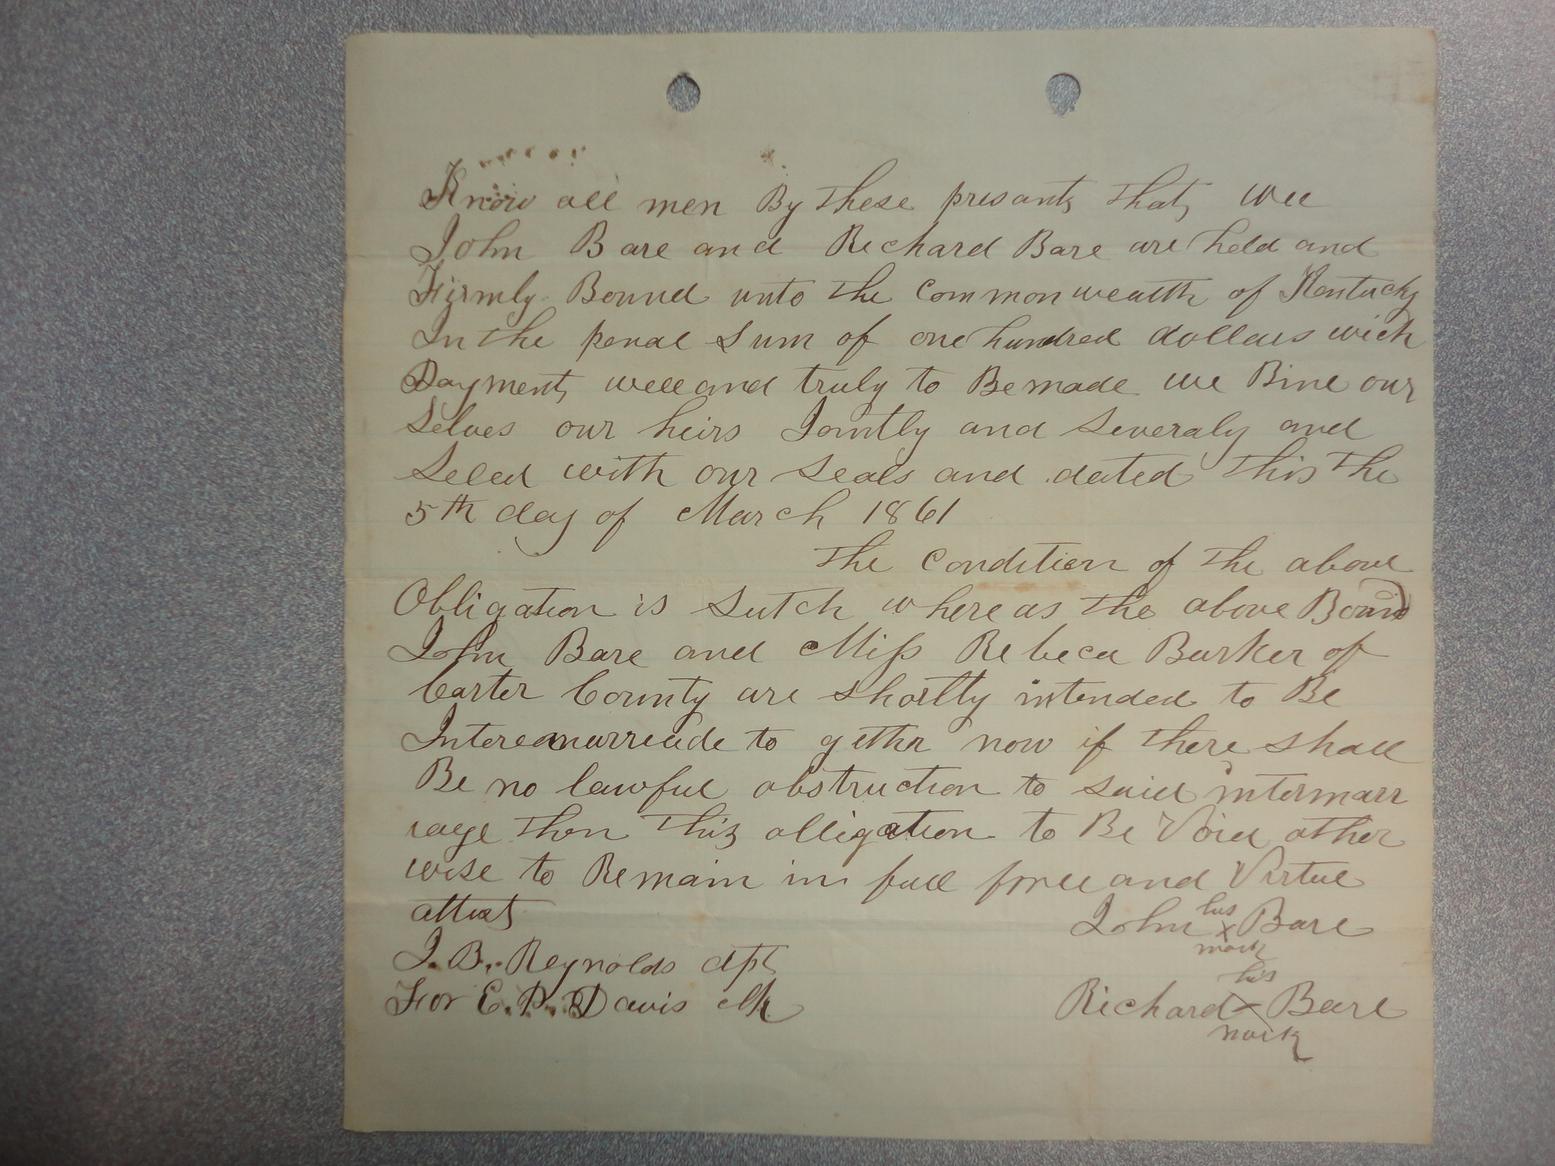 Know all men By these presants that wee
John Bare and Richard Bare are held and
Firmly Bound unto the Common wealth of Kentucky
In the penal Sum of one hundred dollars wich
Payment well and truly to Be made we Bine our
Selves our heirs Jointly and Severaly and
Seled with our Seals and dated this the
5th day of March 1861
the Condition of the above
Obligation is Sutch where as the above Bound
John Bare and Miss Rebeca Barker of
Carter County are shortly intended to Be
to gether now if there shall
Be no lawful obstruction to said intermarr
iage then this obligation to Be Void other
wise to Remain in full force and Virtue
attest
John his x mark Bare
J. B. Reynolds dpt
For E. P. Davis clk
Richard his x mark Bare